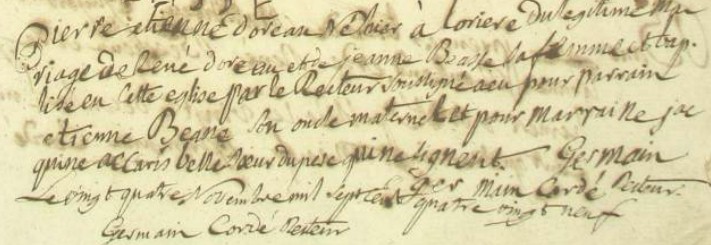 Pierre etienne doreau né hier à Loriere du legitime ma
riage de René doreau et de jeanne Beasse sa femme et bap-
tisé en cette eglise par le Recteur soussigné a eu pour parrain
etienne Beasse son oncle maternel et pour marraine jac
quine accaris belle soeur du pere qui ne signent
Germain
Le vingt quatre Novembre mil sept cent quatre vingt neuf
Germain Cordé Recteur.
Germain Cordé Recteur